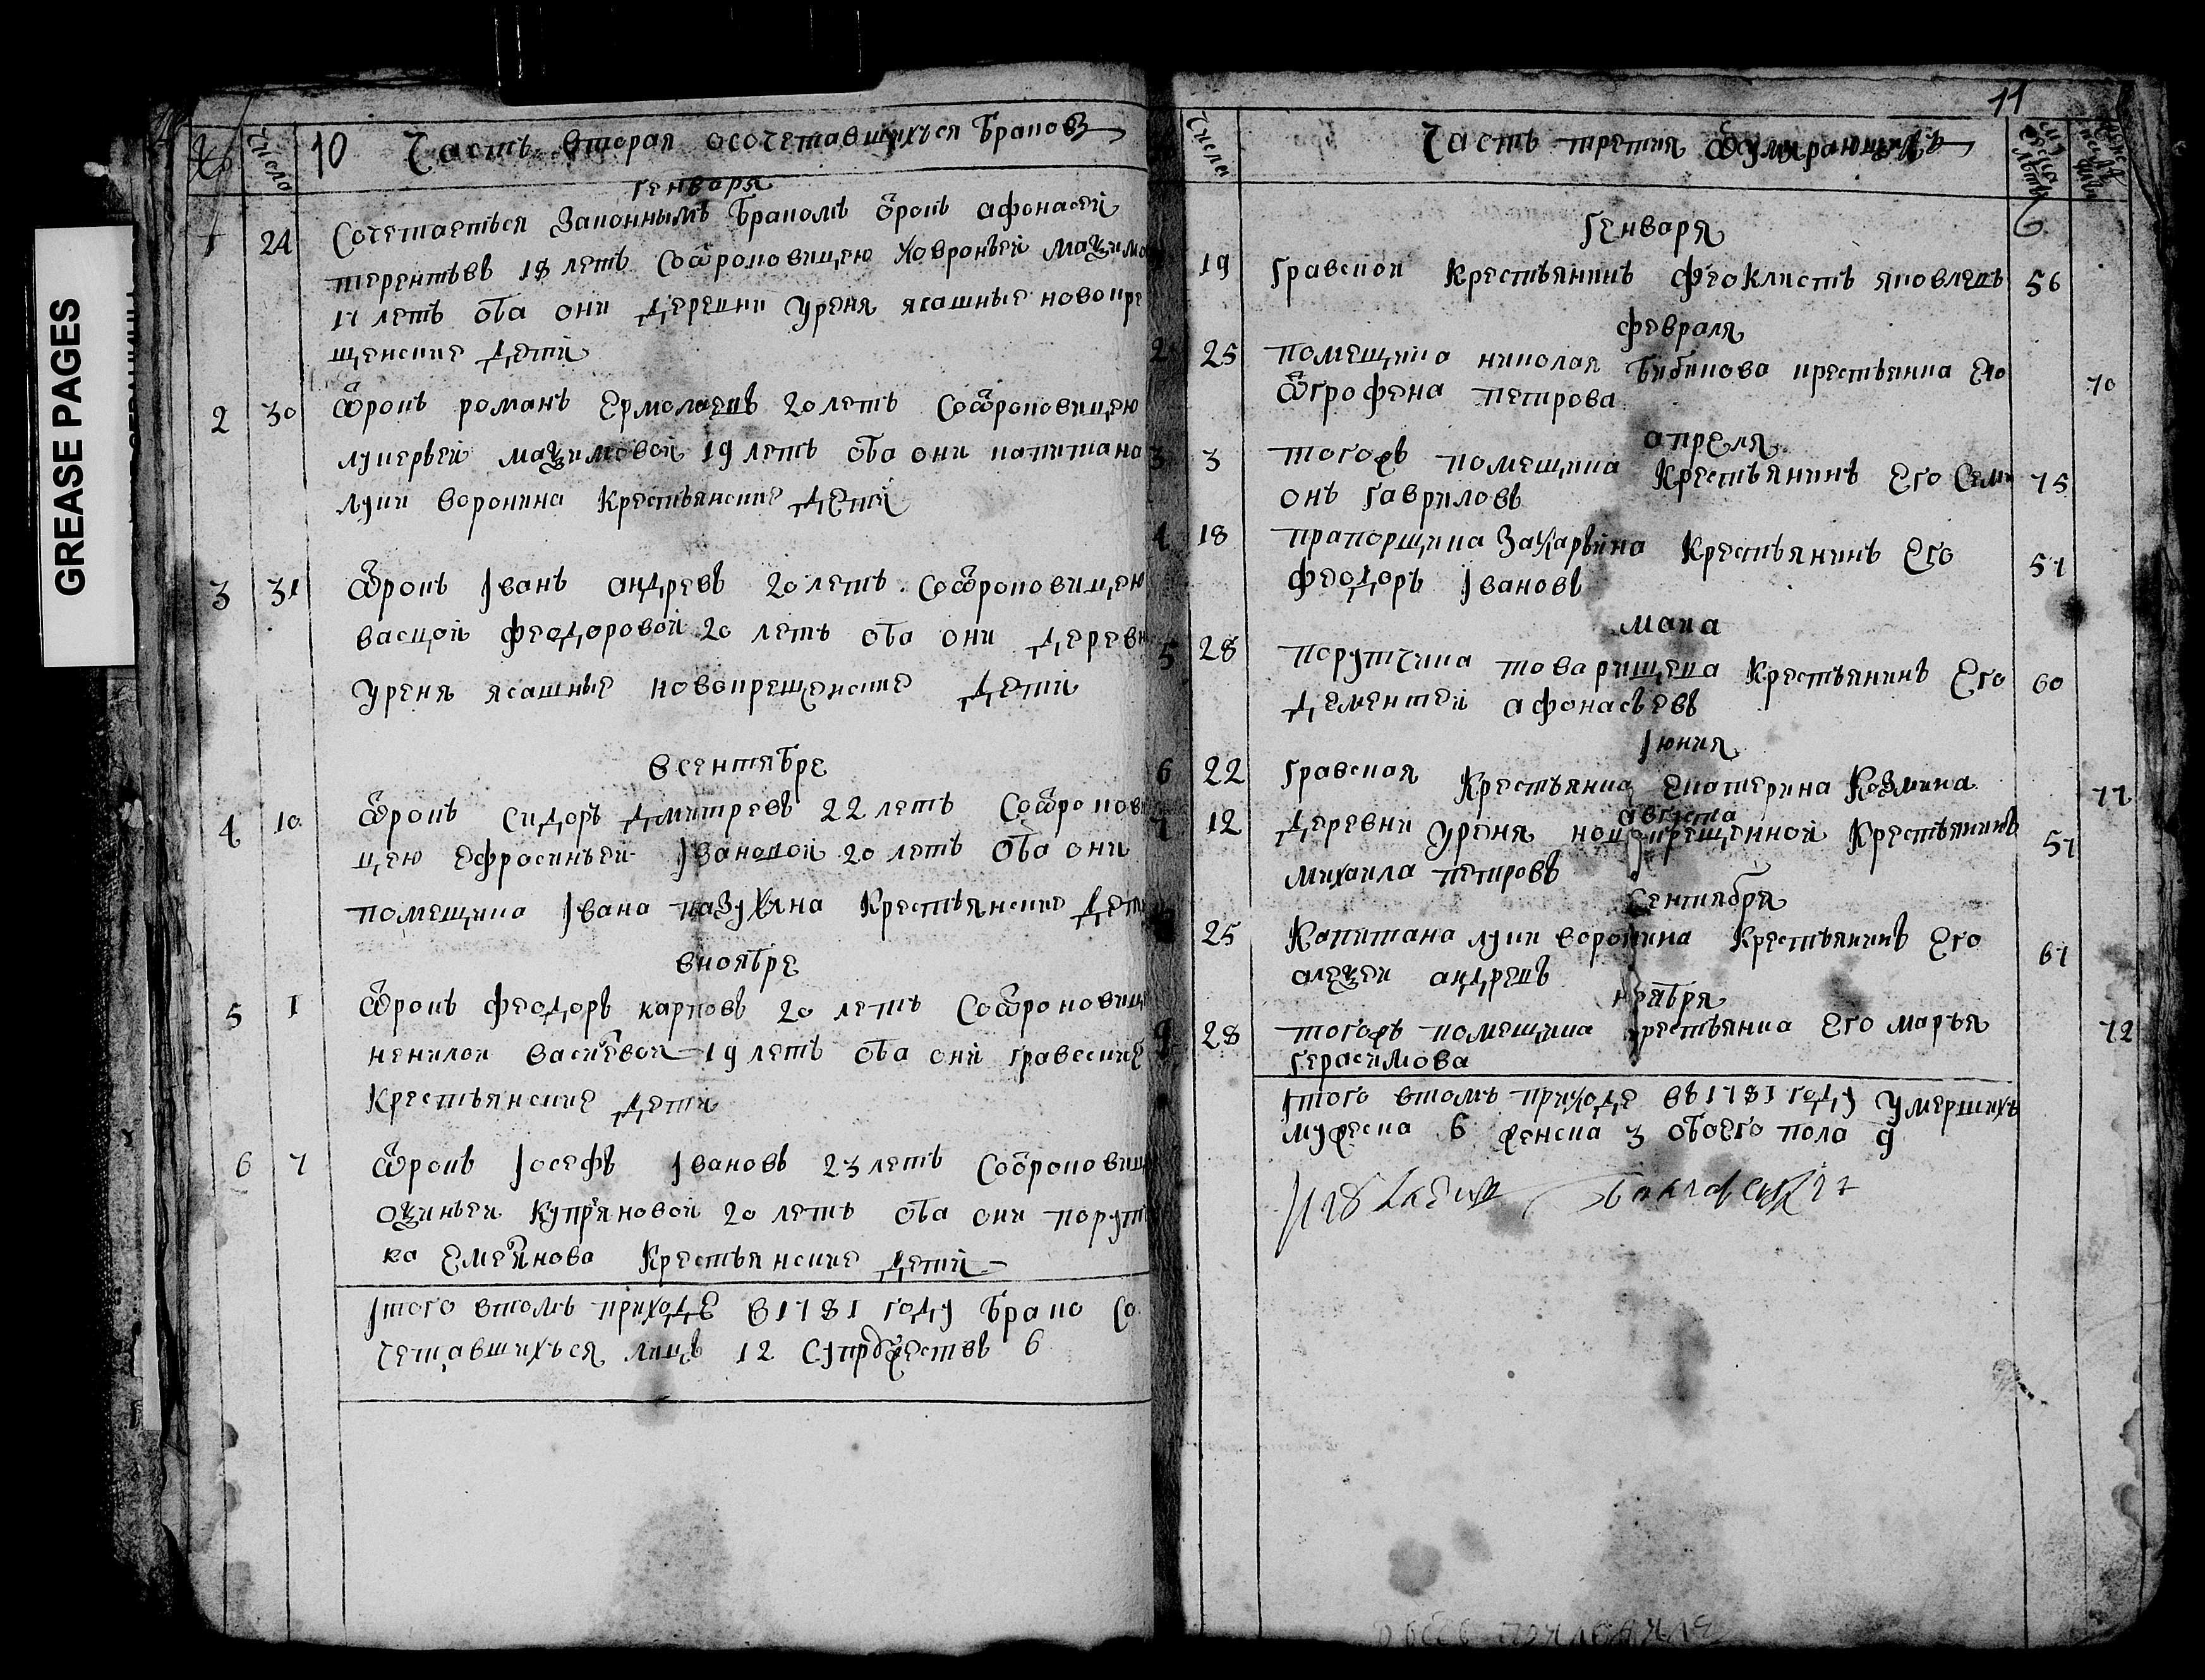 GREASE PAGES
№ Число 10 Часть вторая осочетавшихься браковъ
генваря
1 24 Сочетаеться законнымъ бракомъ ѿрокъ афонасей
терентьевъ 18 летъ соѿроковицею ховроньей маѯимо
17 летъ оба они деревни уреня ясашные новокре
щенские дети
2 30 ѿрокъ романъ ермолаевъ 20 летъ соѿроковицею
лукерьей маѯимовой 19 летъ оба они капитана
луки воронина крестьянские дети
3 31 ѿрокъ Iванъ андревъ 20 летъ соѿроковицею
васцой феодоровой 20 летъ оба они деревн
уреня ясашные новокрещенские дети
всентябре
4 10 ѿрокъ сидоръ дмитревъ 22 летъ соѿрокови
цею ефросиньей Iвановой 20 летъ оба они
помещика Iвана пазухина крестьянские дети
вноябре
5 1 ѿрокъ феодоръ карповъ 20 летъ соѿроковиц
ненилой васиевой 19 летъ оба они гравские
крестьянские дети
6 7 ѿрокъ Iосефъ Iвановъ 23 летъ соѿроковиц
оѯиньей купряновой 20 летъ оба они порутч
ка емеянова крестьянские дети
Iтого втомъ приходе в1781 году брако со
четавшихься лицъ 12 супружествъ 6
11
Числа Часть третия ѿумирающихъ
Генваря
19 Гравской крестьянинъ феоклистъ яковлевъ 56
февраля
2 25 помещика николая бибикова крестьянка его
ѿгрофена петрова 70
апреля
3 3 тогожъ помещика крестьянинъ его семи
онъ гавриловъ 75
4 18 прапорщика захарьина крестьянинъ его
феодоръ Iвановъ 57
маиа
5 28 порутчика товарищева крестьянинъ его
дементей афонасьевъ 60
Iюния
6 22 гравская крестьянка екатерина козмина 77
августа
7 12 деревни уреня новокрещенной крестьянинъ
михаила петровъ 57
сентября
25 капитана луки воронина крестьянинъ его
алеѯеи андревъ 67
ноября
9 28 тогожъ помещика крестьянка его марья
герасимова 72
Iтого втомъ приходе въ1781 году умершихъ
мужеска 6 женска 3 обоего пола 9